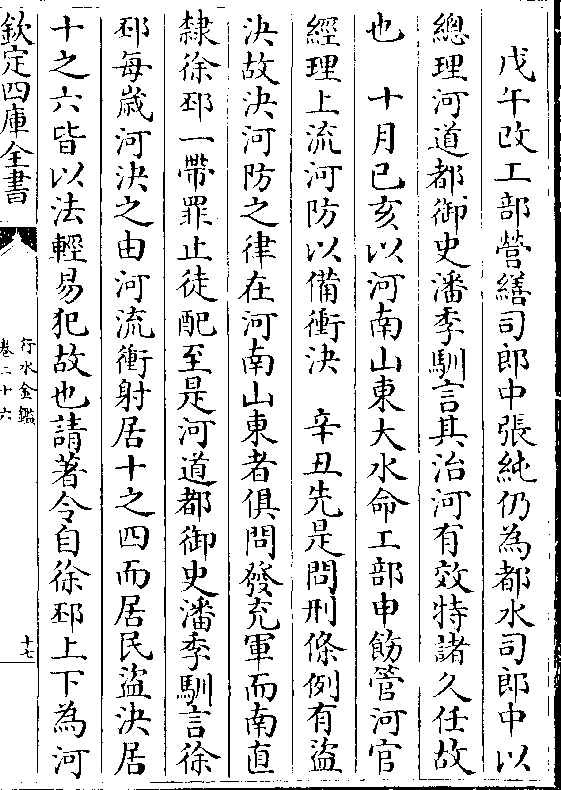 戊午改工部營繕司郎中張純仍為都水司郎中以
總理河道都御史潘季馴言其治河有效特諸久任故
也　十月已亥以河南山東大水命工部申飭管河官
經理上流河防以備衝決　辛丑先是問刑條例有盜
決故決河防之律在河南山東者俱問發充軍而南直
隸徐邳一帶罪止徒配至是河道都御史潘季馴言徐
邳每歲河決之由河流衝射居十之四而居民盜決居
十之六皆以法輕易犯故也請著令自徐邳上下為河
欽定四庫全書
行水金鑑
卷二十六
十七